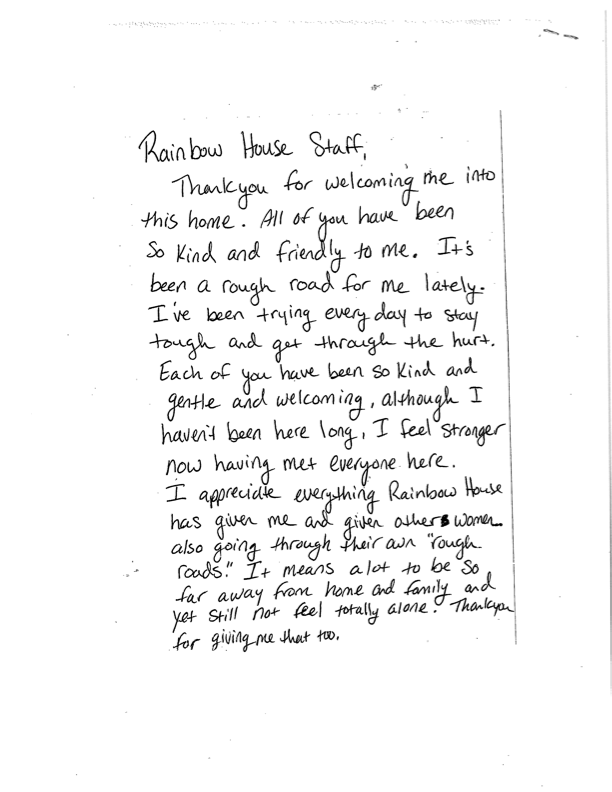 Rainbow House Staff,
Thankyou for welcoming me into
this home. All of you have been
so kind and friendly to me. It's
been a rough road for me lately.
I've been trying every day to stay
tough and get through the hurt.
Each of you have been so kind and
gentle and welcoming, although I
haven't been here long, I feel stronger
now having met everyone here.
I appreciate everything Rainbow House
has given me and given others women
also going through their own "rough
roads." It means a lot to be so
far away from home and family and
yet still not feel totally alone. Thankyou
for giving me that too.